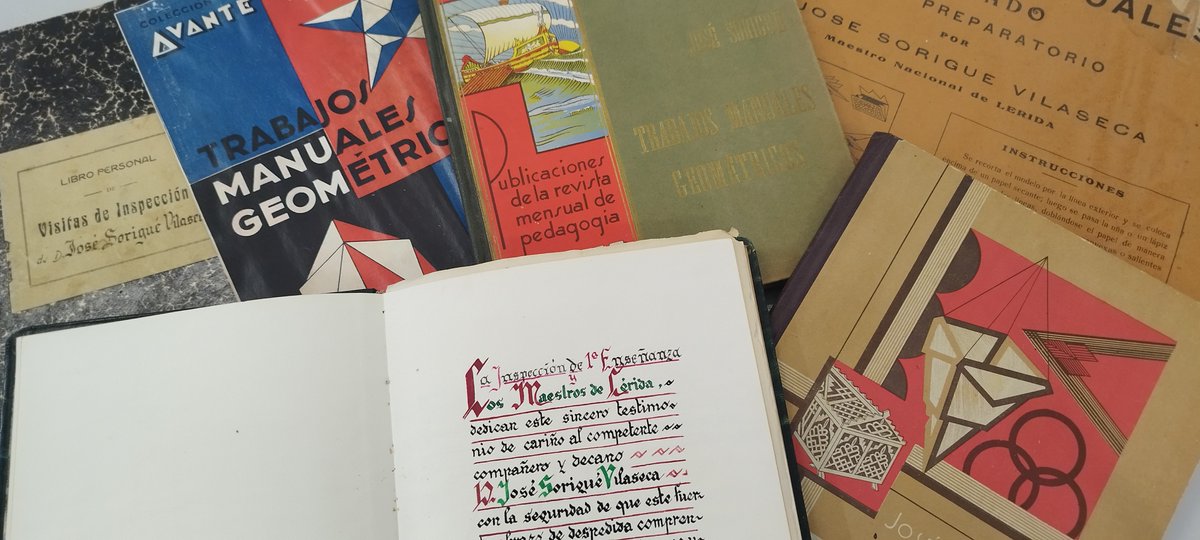 LIBRO PERSONAL
DE
Visitas de Inspección
de D. José Sorigué
COLECCIÓN
AVANTE
TRABAJOS
MANUALES
GEOMÉTRIC
Publicaciones
de la revista
mensual de
pedagogía
JOSÉ
TRABAJOS MANUALES
GEOMÉTRICOS
UALES
PREPARATORIO
POR
JOSE SORIGUE VILASECA
Maestro Nacional de LERIDA
INSTRUCCIONES
Se recorta el modelo por la línea exterior y se coloca
encima de un papel secante; luego se pasa la uña o un lápiz
doblándose el papel de manera
o salientes
La Inspección de 1ª Enseñanza
y
Los Maestros de Lérida,
dedican este sincero testimo-
nio de cariño al competente
compañero y decano
D. José Sorigué Vilaseca
con la seguridad de que este fuer-
abrazo de despedida compren-